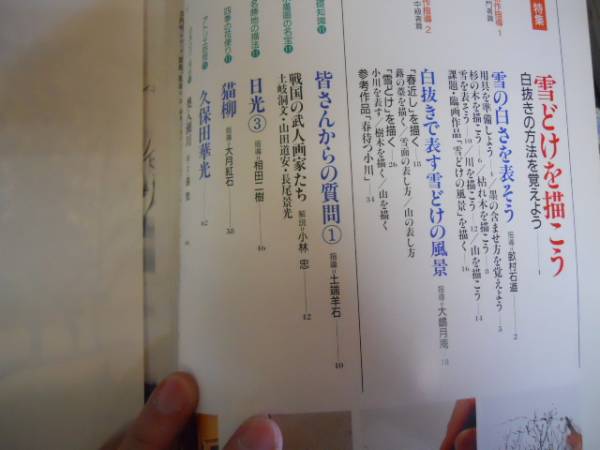 特集
雪どけを描こう
白抜きの方法を覚えよう―1
作指導・1
雪の白さを表そう 指導●畝村石遥―2
用具を準備しよう―4／墨の含ませ方を覚えよう―5
杉の木を描こう―6／枯れ木を描こう―8
雪を表そう―10／川を描こう―12／山を描こう―14
課題・臨画作品「雪どけの風景」を描く―16
作指導・2
白抜きで表す雪どけの風景 指導●大嶋月湾 18
「春近し」を描く―18
蕗の薹を描く／雪面の表し方／山の表し方
「雪どけ」を描く―26
小川を表す／樹木を描く／山を描く
参考作品「春待つ小川」―34
皆さんからの質問① 指導●土端羊石―40
戦国の武人画家たち 解説●小林 忠―42
土岐洞文・山田道安・長尾景光
日光③ 指導●相田二樹―46
猫柳 指導●大月紅石―38
久保田華光
四季の花便り⑪
名勝地の描法⑪